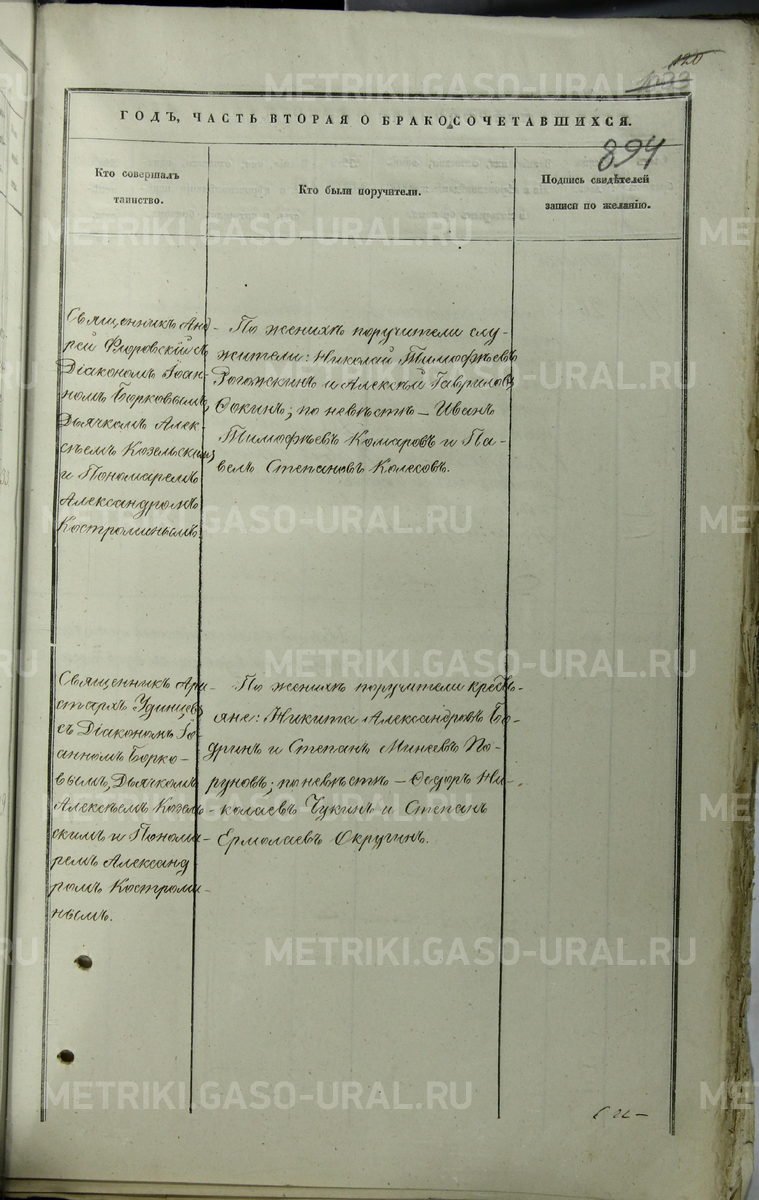 120
894
ГОДЪ, ЧАСТЬ ВТОРАЯ О БРАКОСОЧЕТАВШИХСЯ.
Кто совершалъ
таинство.
Кто были поручители.
Подпись свидѣтелей
записи по желанію.
Священникъ Анд-
рей Флоровскій съ
Діакономъ Іоан-
номъ Борковымъ,
Дьячкомъ Алек-
сѣемъ Козельскимъ
и Пономаремъ
Александромъ
Костроминымъ.
По женихѣ поручители слу-
жители: Николай Тимофѣевъ
Рогожкинъ и Алексѣй Гавриловъ
Сокинъ; по невѣстѣ – Иванъ
Тимофѣевъ Комаровъ и Па-
велъ Степановъ Колесовъ.
Священникъ Ари-
стархъ Удинцевъ
съ Діакономъ Іо-
анномъ Борко-
вымъ, Дьячкомъ
Алексѣемъ Козель-
скимъ и Понома-
ремъ Александ-
ромъ Костроми-
нымъ.
По женихѣ поручители кресть-
яне: Никита Александровъ Бо-
дринъ и Степанъ Минеевъ По-
руновъ; по невѣстѣ – Ѳедоръ Ни-
колаевъ Чукинъ и Степанъ
Ермолаевъ Округинъ.
METRIKI.GASO-URAL.RU